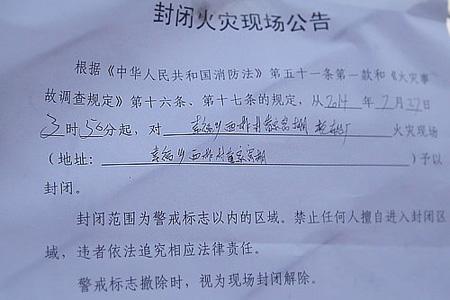 封闭火灾现场公告
根据《中华人民共和国消防法》第五十一条第一款和《火灾事
故调查规定》第十六条、第十七条的规定，从2014年7月27日
3时50分起，对 火灾现场
（地址： ）予以
封闭。
封闭范围为警戒标志以内的区域。禁止任何人擅自进入封闭区
域，违者依法追究相应法律责任。
警戒标志撤除时，视为现场封闭解除。